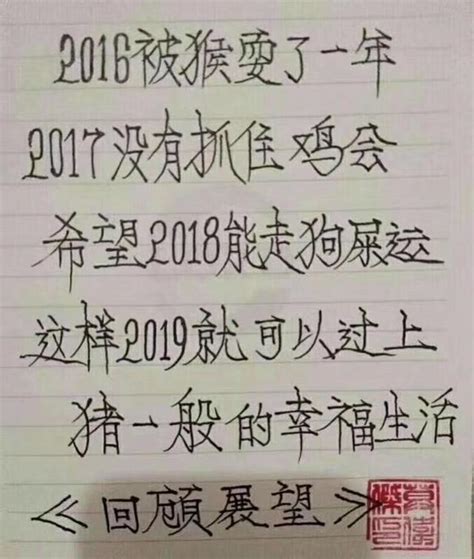 2016被猴耍了一年
2017没有抓住鸡会
希望2018能走狗屎运
这样2019就可以过上
猪一般的幸福生活
《回顾展望》